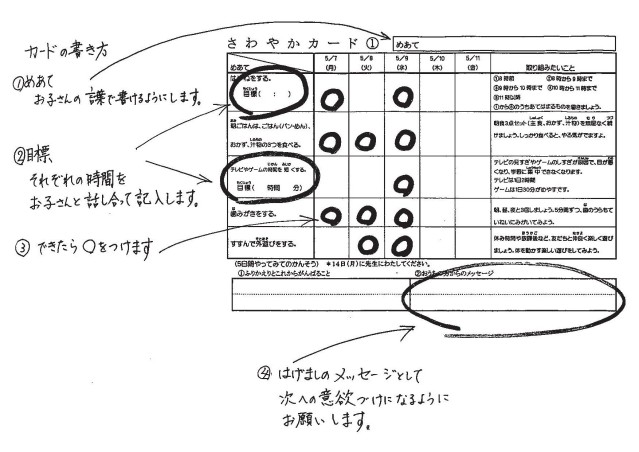 カードの書き方
①めあて
お子さんの言葉で書けるようにします。
②目標、
それぞれの時間を
お子さんと話し合って記入します。
③できたら○をつけます
さわやかカード①
めあて
めあて
5/7
(月)
5/8
(火)
5/9
(水)
5/10
(木)
5/11
(金)
取り組みたいこと
をする。
目標( : )
朝ごはんは、ごはん(パン・めん)、
おかず、汁物の3つを食べる。
テレビやゲームの時間を短くする。
目標( 時間 分)
歯みがきをする。
すすんで外遊びをする。
①8時前 ②8時から9時まで
③9時から10時まで ④10時から11時まで
⑤11時以降
①から⑤のうちあてはまるものを書きましょう。
朝食3点セット(主食、おかず、汁物)を意識なく続
けましょう。しっかり食べると、やる気がでますよ。
テレビの見すぎやゲームのしすぎが原因で、目が悪
くなり、学習に集中できなくなります。
テレビは1日2時間
ゲームは1日30分がめやすです。
朝、昼、夜と3回しましょう。5分間ずつ、歯のうらもて
いねいにみがいてみよう。
休み時間や放課後など、友だちと仲良く楽しく遊び
ましょう。体を動かす楽しい遊びをしてみよう。
(5日間やってみてのかんそう) *14日(月)に先生にわたしてください。
①ふりかえりとこれからがんばること
②おうちの方からのメッセージ
④はげましのメッセージとして
次への意欲づけになるように
お願いします。